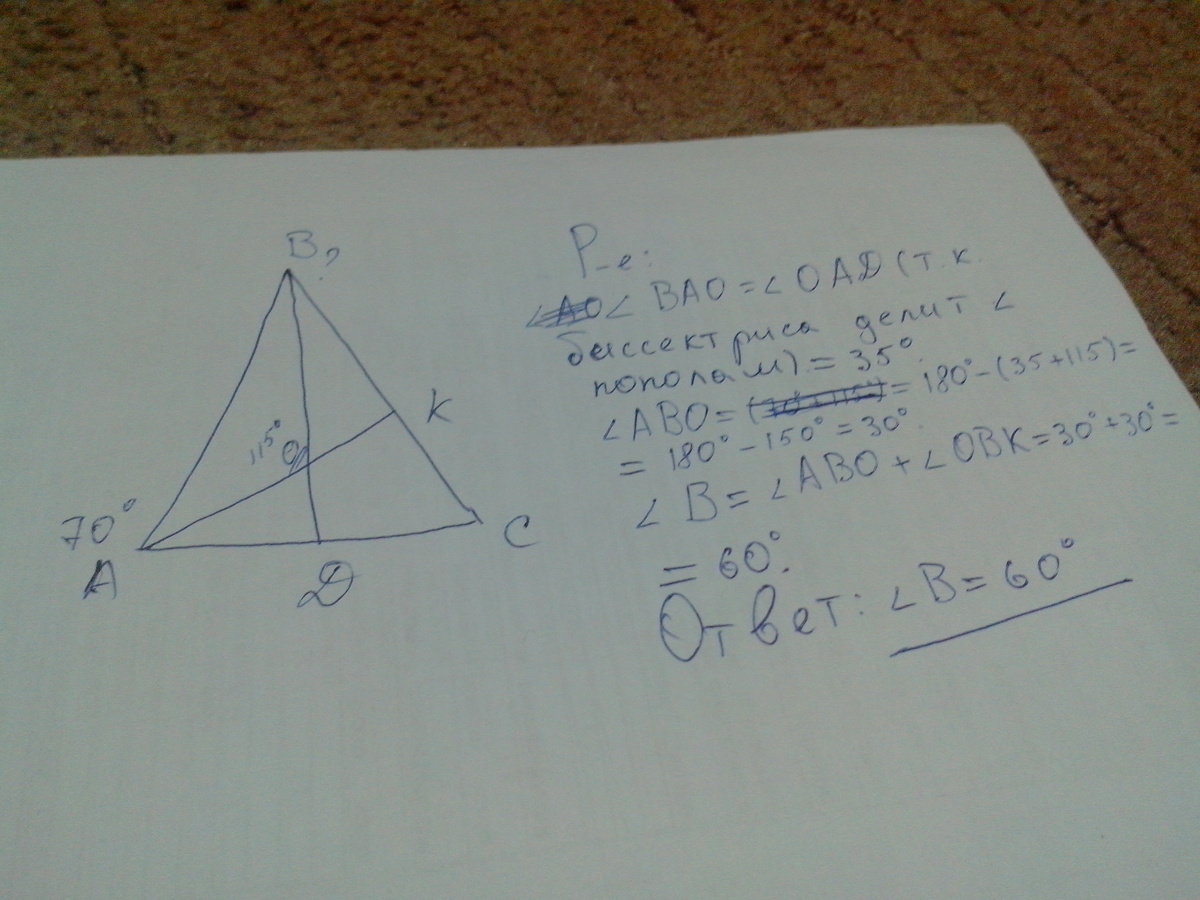 B ?
K
115°
O
70°
A
D
C
Р-е:
∠AO∠ BAO = ∠OAD (т.к.
биссектриса делит ∠
пополам) = 35°.
∠ABO = (70°+115°) = 180° - (35+115) =
= 180° - 150° = 30°.
∠B = ∠ABO + ∠OBK = 30° + 30° =
= 60°.
Ответ: ∠B = 60°